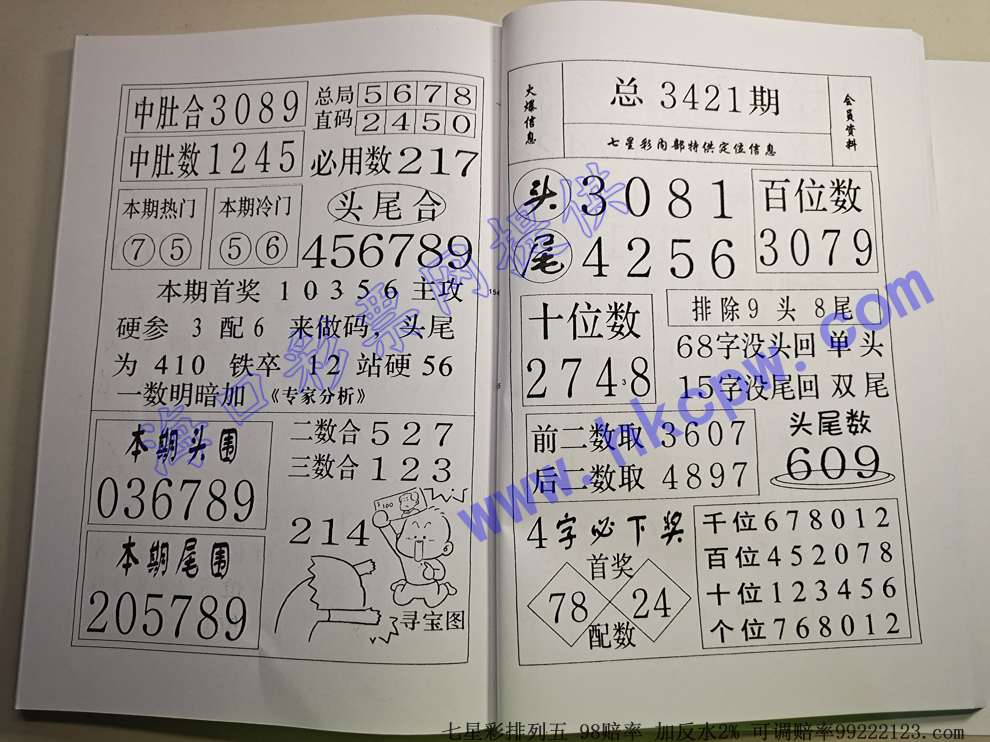 中肚合3089
总局 5678
直码 2450
中肚数1245
必用数217
本期热门
⑦⑤
本期冷门
⑤⑥
头尾合
456789
本期首奖 10356 主攻
硬参 3 配6 来做码，头尾
为 410 铁卒 12 站硬 56
一数明暗加 《专家分析》
本期头围
036789
本期尾围
205789
二数合 527
三数合 123
214
$100
寻宝图
火爆信息
总 3421期
七星彩内部特供定位信息
会员资料
头 3081
尾 4256
百位数
3079
十位数
2748
排除9 头 8尾
68字没头回 单 头
15字没尾回 双 尾
前二数取 3607
后二数取 4897
头尾数
609
4字必下奖
首奖
78 24
配数
千位678012
百位452078
十位123456
个位768012
海口彩票网提供
www.hkcpw.com
七星彩排列五 98赔率 加反水2% 可调赔率99222123.com